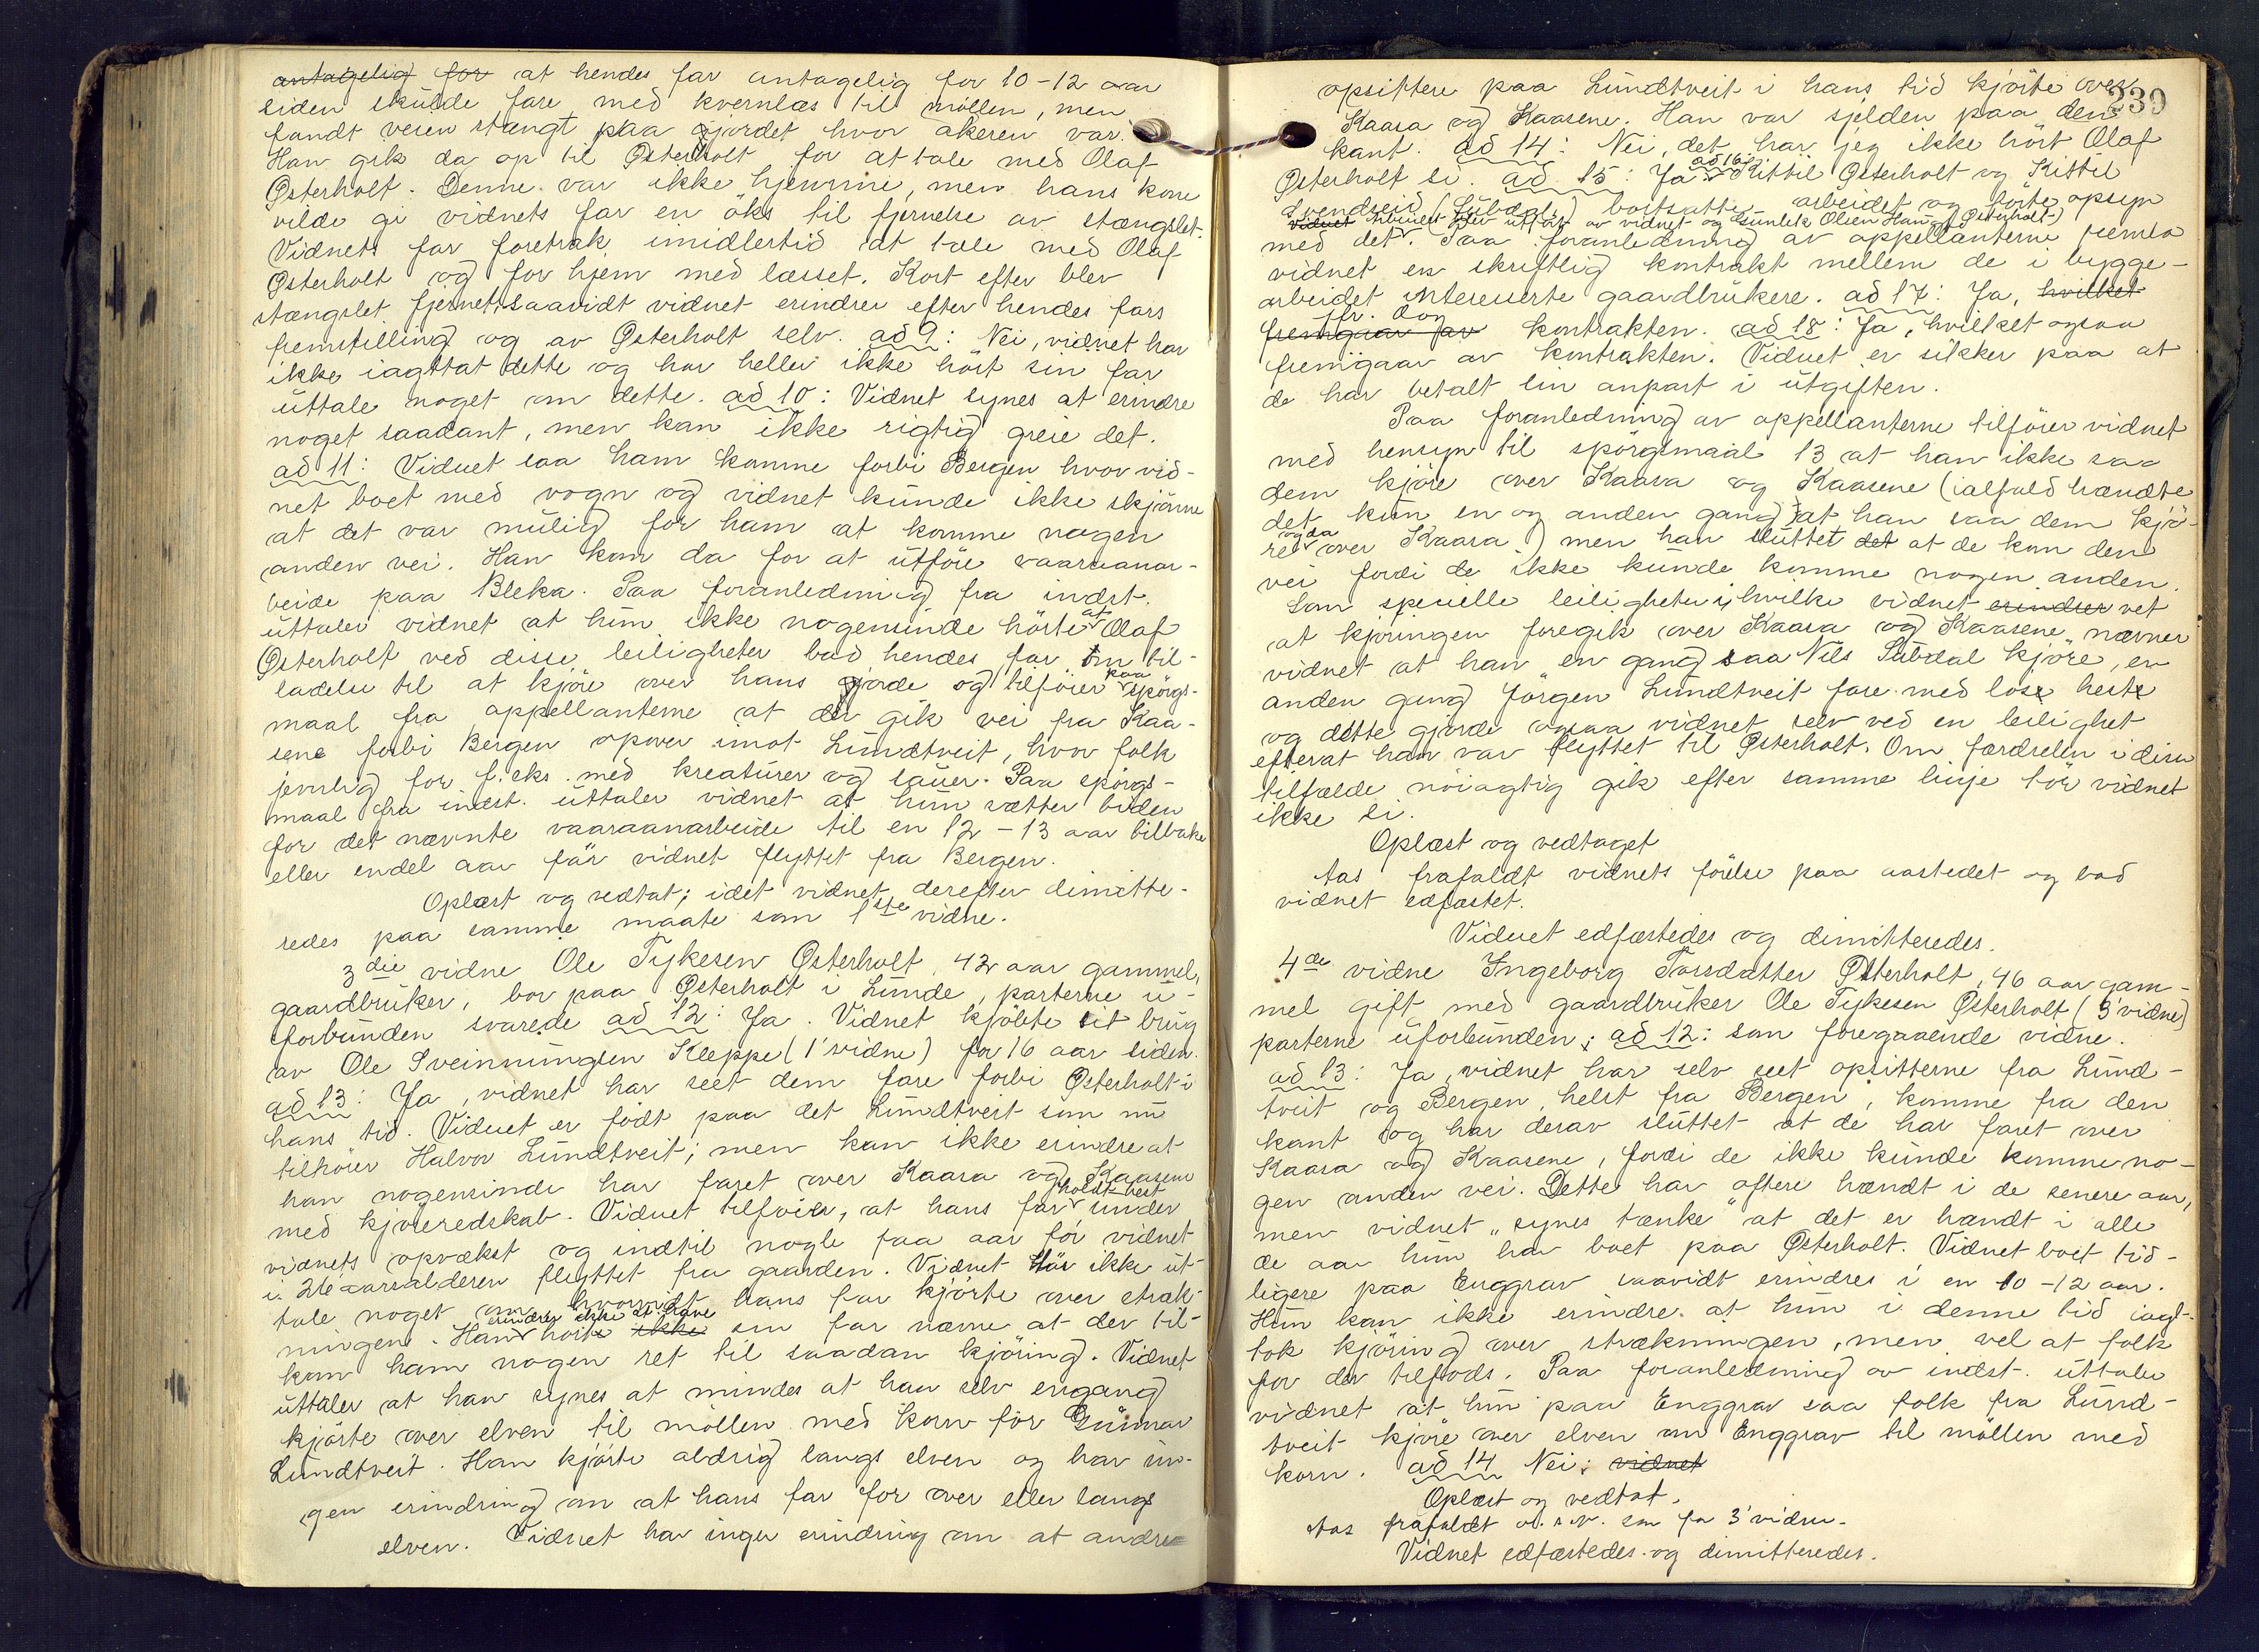 antagelig for at hendes far antagelig for 10-12 aar
siden skulde fare med kvernlas til møllen, men
fandt veien stængt paa gjordet hvor akeren var.
Han gik da op til Østerholt for at tale med Olaf
Østerholt. Denne var ikke hjemme, men hans kone
vilde gi vidnets far en øks til fjernelse av stængslet.
Vidnets far foretrak imidlertid at tale med Olaf
Østerholt og for hjem med læsset. Kort efter blev
stængslet fjernet, saavidt vidnet erindrer efter hendes fars
fremstilling og av Østerholt selv. ad 9: Nei, vidnet har
ikke iagttat dette og har heller ikke hørt sin far
uttale noget om dette. ad 10: Vidnet synes at erindre
noget saadant, men kan ikke rigtig greie det.
ad 11: Vidnet saa ham komme forbi Bergen hvor vid-
net boet med vogn og vidnet kunde ikke skjønne
at det var mulig for ham at komme nogen
anden vei. Han kom da for at utføre vaaraanar-
beide paa Bleka. Paa foranledning fra indst.
uttaler vidnet at hun ikke nogensinde hørte at Olaf
Østerholt ved disse leiligheter bad hendes far om til-
ladelse til at kjøre over hans gjorde og tilføier paa spørgs-
maal fra appellanterne at der gik vei fra Kaa-
sene forbi Bergen opover imot Lundtveit, hvor folk
jevnlig for f. eks. med kreaturer og sauer. Paa spørgs-
maal fra indst. uttaler vidnet at hun sætter tiden
for det nævnte vaaraanarbeide til en 12-13 aar tilbake
eller endel aar før vidnet flyttet fra Bergen.
Oplæst og vedtat; idet vidnet derefter dimitte-
redes paa samme maate som 1ste vidne.
3die vidne Ole Tykesen Østerholt, 42 aar gammel,
gaardbruker, bor paa Østerholt i Lunde, parterne u-
forbunden svarede ad 12: Ja. Vidnet kjøbte sit brug
av Ole Sveinningsen Kleppe (1' vidne) for 16 aar siden.
ad 13: Ja, vidnet har seet dem fare forbi Østerholt i
hans tid. Vidnet er født paa det Lundtveit som nu
tilhører Halvor Lundtveit; men kan ikke erindre at
han nogensinde har faret over Kaasa og Kaasene
med kjøreredskab. Vidnet tilføier, at hans far holdt hest under
vidnets opvækst og indtil nogle faa aar før vidnet
i 26 aarsalderen flyttet fra gaarden. Vidnet tør ikke ut-
tale noget om hvorvidt hans far kjørte over stræk-
ningen. Han erindrer ikke at have hørt ikke sin far nævne at der til-
kom ham nogen ret til saadan kjøring. Vidnet
uttaler at han synes at mindes at han selv engang
kjørte over elven til møllen med korn for Gunnar
Lundtveit. Han kjørte aldrig langs elven og har in-
gen erindring om at hans far for over eller langs
elven. Vidnet har ingen erindring om at andre
239
opsittere paa Lundtveit i hans tid kjørte over
Kaasa og Kaasene. Han var sjelden paa den
kant. ad 14: Nei, det har jeg ikke hørt Olaf
Østerholt si. ad 15: Ja. ad 16: Kittil Østerholt og Kittil
Svendseid (Lubdal) bortsatte arbeidet og førte opsyn
vidnet arbeidet blev utført av vidnet og Gunleik Olsen Haugen Østerholt)
med det. Paa foranledning av appellanterne fremla
vidnet en skriftlig kontrakt mellem de i bygge-
arbeidet interesserte gaardbrukere. ad 17: Ja, hvilket
fremgaar av jfr. dog kontrakten. ad 18: Ja, hvilket ogsaa
fremgaar av kontrakten. Vidnet er sikker paa at
de har betalt sin anpart i utgiften.
Paa foranledning av appellanterne tilføier vidnet
med hensyn til spørgsmaal 13 at han ikke saa
dem kjøre over Kaasa og Kaasene (ialfald hændte
det kun en og anden gang) at han saa dem kjø-
re ogsaa over Kaasa) men han sluttet det at de kom den
vei fordi de ikke kunde komme nogen anden.
Som specielle leiligheter i hvilke vidnet erindrer vet
at kjøringen foregik over Kaasa og Kaasene nævner
vidnet at han en gang saa Nils Lubdal kjøre, en
anden gang Jørgen Lundtveit fare med løse heste
og dette gjorde ogsaa vidnet selv ved en leilighet
efterat han var flyttet til Østerholt. Om færdselen i disse
tilfælde nøiagtig gik efter samme linje tør vidnet
ikke si.
Oplæst og vedtaget
Aas frafaldt vidnets førelse paa aastedet og bad
vidnet edfæstet.
Vidnet edfæstedes og dimitteredes.
4de vidne Ingeborg Torsdatter Østerholt, 46 aar gam-
mel gift med gaardbruker Ole Tykesen Østerholt (3' vidne)
parterne uforbunden; ad 12: som foregaaende vidne.
ad 13: Ja, vidnet har selv seet opsitterne fra Lund-
tveit og Bergen, helst fra Bergen, komme fra den
kant og har derav sluttet at de har faret over
Kaasa og Kaasene, fordi de ikke kunde komme no-
gen anden vei. Dette har oftere hændt i de senere aar,
men vidnet "synes tænke" at det er hændt i alle
de aar hun har boet paa Østerholt. Vidnet boet tid-
ligere paa Enggrav saavidt erindres i en 10-12 aar.
Hun kan ikke erindre at hun i denne tid iagt-
tok kjøring over strækningen, men vel at folk
for der tilfods. Paa foranledning av indst. uttaler
vidnet at hun paa Enggrav saa folk fra Lund-
tveit kjøre over elven om Enggrav til møllen med
korn. ad 14 Nei; vidnet
Oplæst og vedtat.
Aas frafaldt o.s.v. som for 3' vidne.
Vidnet edfæstedes og dimitteredes.